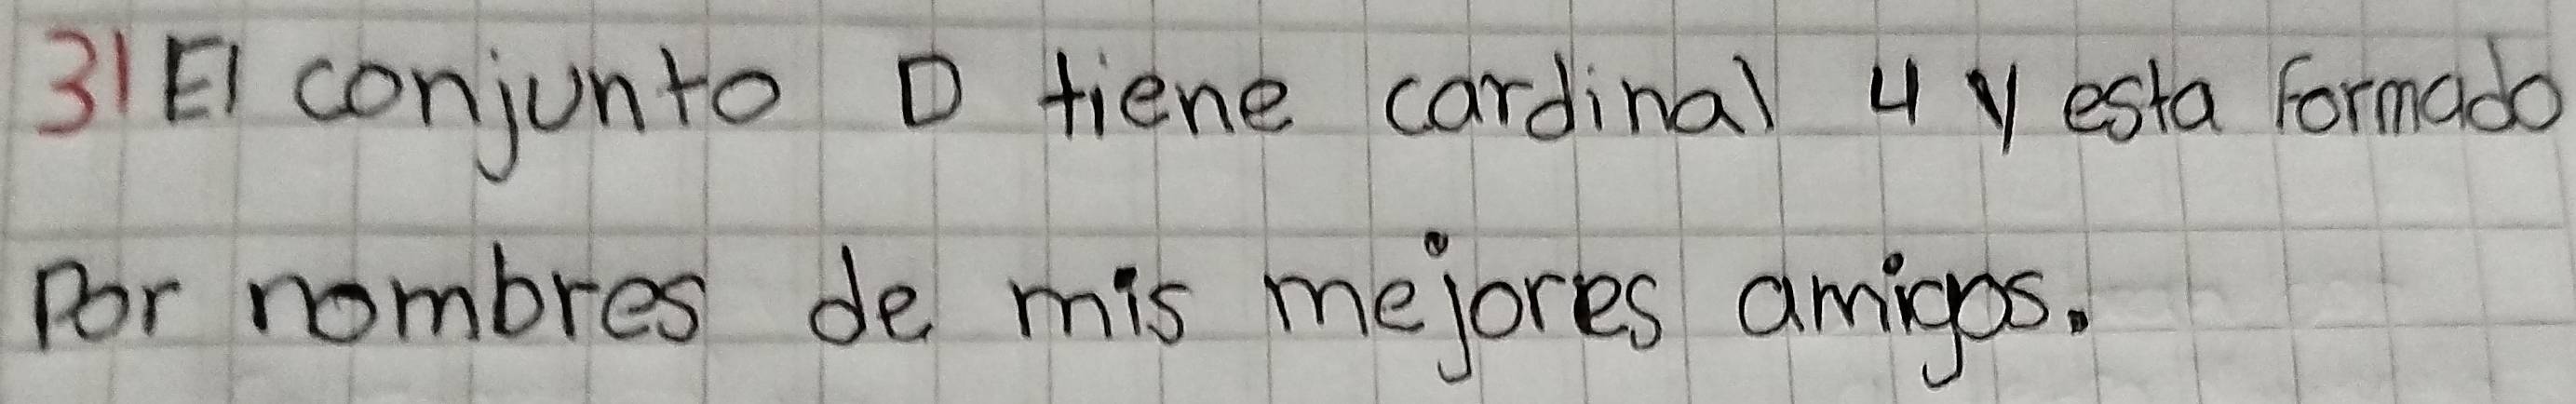 3) El conjunto D tiene cardinal 4 y esta formado
por nombres de mis mejores amigos.